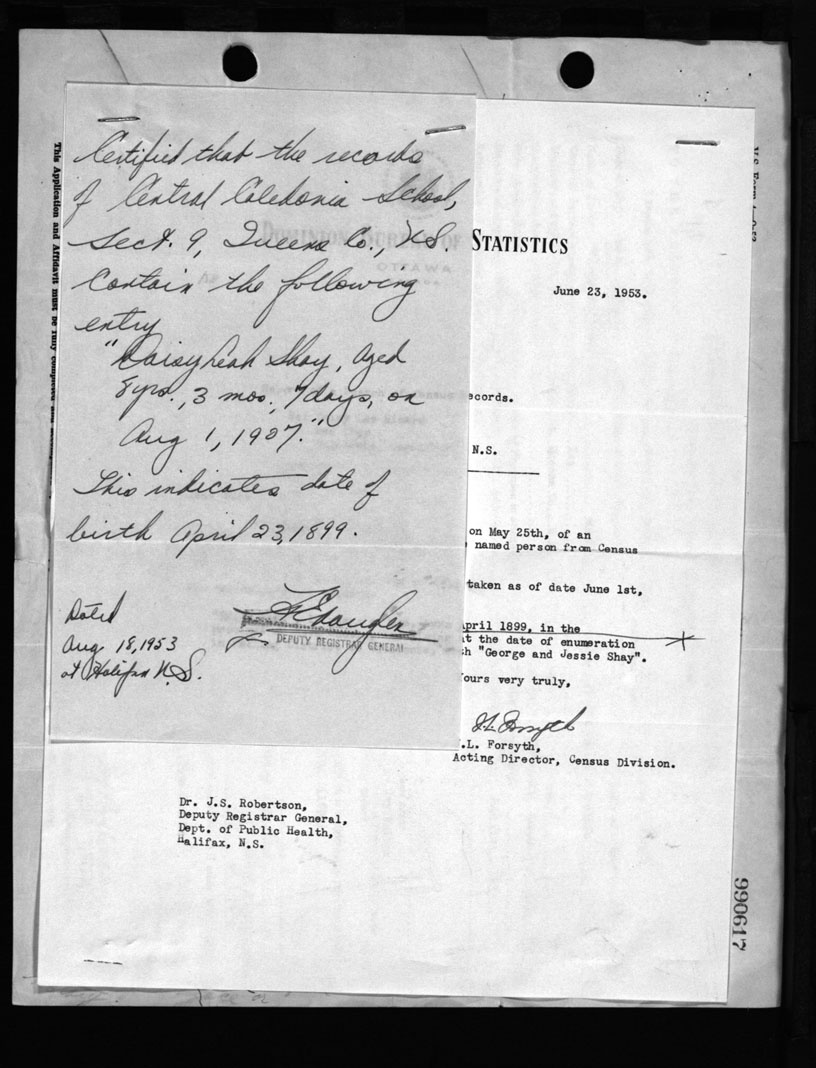 Certified that the records
of Central Caledonia School,
Sect. 9, Queens Co., N.S.
contain the following
entry
"Daisy Leah Shay, aged
8 yrs., 3 mos., 7 days, on
Aug 1, 1907."
This indicates date of
birth April 23, 1899.
Dated
Aug 18, 1953
at Halifax N.S.
DEPUTY REGISTRAR GENERAL
DOMINION BUREAU OF STATISTICS
June 23, 1953.
ecords.
N.S.
on May 25th, of an
named person from Census
taken as of date June 1st,
April 1899, in the
at the date of enumeration
h "George and Jessie Shay".
Yours very truly,
J.L. Forsyth
.L. Forsyth,
Acting Director, Census Division.
Dr. J.S. Robertson,
Deputy Registrar General,
Dept. of Public Health,
Halifax, N.S.
This Application and Affidavit must be fully completed and
990617